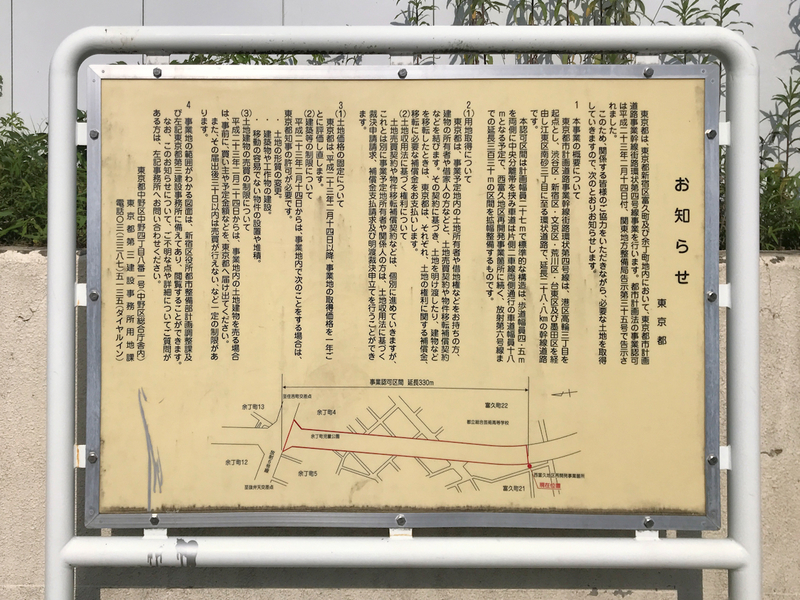 お知らせ
東京都
東京都は、東京都新宿区富久町及び余丁町地内において、東京都市計画
道路事業幹線街路環状第四号線事業を行います。都市計画法の事業認可
は平成二十三年二月十四日付、関東地方整備局告示第三十五号で告示さ
れました。
このため、関係する皆様のご協力をいただきながら、必要な土地を取得
していきますので、次のとおりお知らせします。
1 本事業の概要について
東京都市計画道路事業幹線街路環状第四号線は、港区高輪三丁目を
起点とし、渋谷区・新宿区・文京区・荒川区・台東区及び墨田区を経
由し江東区南砂三丁目に至る環状道路で、延長二十八・八kmの幹線道路
です。
本認可区間は計画幅員二十七mで標準的な構造は、歩道幅員四・五m
を両側に中央分離帯を挟み車道は片側二車線両側通行の車道幅員十八
mとなる予定で、西富久地区再開発事業箇所に続く、放射第六号線ま
での延長三百三十mの区間を拡幅整備するものです。
2
(1)用地取得について
東京都は、事業予定地内の土地所有者や借地権などをお持ちの方、
建物の所有者や借家人の方などと、土地売買契約や物件移転補償契約
などを結びます。その契約に基づき、土地を明け渡したり、建物など
を移転したときは、東京都は、それぞれ、土地の権利に関する補償金、
移転に必要な補償金をお支払いします。
(2)土地収用法に基づく権利について
土地売買契約や物件移転補償契約などは、個別に進めていきますが、
これとは別に事業予定地所有者や関係人の方は、土地収用法に基づく
裁決申請請求、補償金支払請求及び明渡裁決申立てを行うことができ
ます。
3
(1)土地価格の固定について
東京都は、平成二十三年二月十四日以降、事業地の取得価格を一年ご
とに評価し直します。
(2)建築等制限について
平成二十三年二月十四日からは、事業地内で次のことをする場合は、
東京都知事の許可が必要です。
・土地の形質の変更
・建築物や工作物の建設。
・移動の容易でない物件の設置や堆積。
(3)土地建物の売買の制限について
平成二十三年二月二十四日からは、事業地内の土地建物を売る場合
は、事前に、買い主や予定金額などを、東京都へ届け出てください。
また、その届出後三十日以内は売買が行えない、など一定の制限があ
ります。
4 事業地の範囲がわかる図面は、新宿区役所都市整備部計画調整課及
び左記東京都第三建設事務所に備えてあり、閲覧することができます。
なお、このお知らせについて、ご不明な点や詳細についてご質問が
ある方は、左記事務所へお問い合わせください。
東京都中野区中野四丁目八番一号(中野区総合庁舎内)
東京都第三建設事務所用地課
電話〇三(三三八七)五一三五(ダイヤルイン)
事業認可区間 延長330m
至住吉町交差点
余丁町13
余丁町4
富久町22
余丁町児童公園
都立総合芸術高等学校
余丁町12
余丁町5
至抜弁天交差点
富久町21
西富久地区再開発事業箇所
現在位置